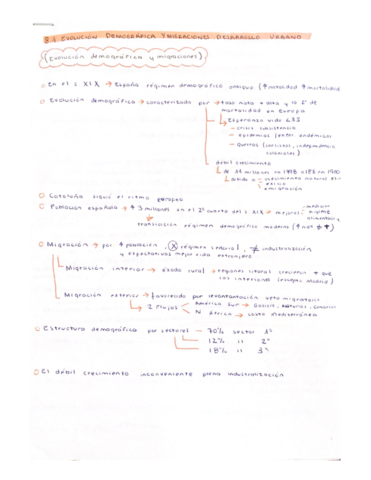 8.1 EVOLUCIÓN DEMOGRÁFICA Y MIGRACIONES DESARROLLO URBANO
(Evolución demográfica y migraciones)
En el s XIX → España régimen demográfico antiguo (↑natalidad ↑mortalidad
Evolución demográfica → caracterizada por → tasa nata + alta y la 2ª de
mortalidad en Europa
Esperanza vida <35
- crisis subsistencia
- epidemias
- Guerras (carlistas, independencia
coloniales)
débil crecimiento
de 11 millones en a 18'5 en 1900
debido a → crecimiento natural
emigración
Cataluña siguió el ritmo europeo
Población española → ↑ 3 millones en el 2º cuarto del s XIX → mejoras
higiene
alimentación
transición régimen demográfico moderno
Migración → por ↑ población, régimen señorial, industrialización
y expectativas mejor vida extranjero
Migración interior → éxodo rural → regiones litoral crecieron + que
las interiores (excepto Madrid)
Migración exterior → favorecida por levantamiento veto migratorio
2 flujos América Sur → Galicia, Asturias, Canarias
N África → costa Mediterránea
Estructura demográfica por sectores - 70% sector 1º
12% " 2º
18% " 3º
El débil crecimiento inconveniente plena industrialización